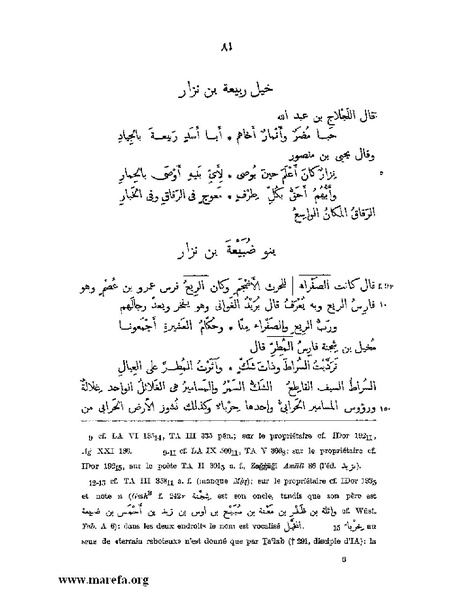 ٨١
خيل ربيعة بن نزار
قال اللجلاج بن عبد الله
حَبَا مُضَرٌ وَأَنْمَارٌ أَخَاهُم • أَبَا أَسَدٍ رَبِيعَةَ بِالجِيَادِ
وقال يحيى بن منصور
٥ نِزَارٌ كَانَ أَعْلَمَ حِينَ يُوصِي • لِأَيِّ بَنِيهِ أَوْصَى بِالحِمَارِ
وَأَيُّهُمُ أَحَقُّ بِكُلِّ طِرْفٍ • مَعُوجٍ فى الرَّقاقِ وفى الخَبَارِ
الرَّقاقُ المَكانُ الواسِعُ
بنو ضُبَيْعَةَ بن نزار
قال كانت الصَّفْراء للحرث الأَضْجَمِ وكان الرَّبِيعُ فرس عمرو بن عُصْمٍ وهو
١٠ فارس الربيع وبه يُعْرَفُ قال بُرَيْدٌ الغَوانى وهو يفخر ويعدّ رجالهم
وَرَبُّ الرَّبِيعِ وَالصَّفْرَاءِ مِنَّا • وَحُكَّامُ العَشِيرَةِ أَجْمَعُونَا
مُخَيل بن شِجنة فارِسُ المُطِرِّ قال
تَرَكْتُ السُّرَاطَ وَذَاتَ شَكٍّ • وَآثَرْتُ المُطِرَّ عَلَى العِيالِ
السُّراطُ السيف القاطِعُ الشكُّ السَّمْرُ والمَساميرُ هى القَلائِلُ الواحد
١٥ ورؤوس المسامير الحَرابىُّ وواحدها حِرْباء وكذلك نُشوز الأرض الحَرابى من
9 cf. LA VI 187, TA III 335 pén.; sur le propriétaire cf. IDor 192,
Ag XXI 186. 9-11 cf. LA IX, TA V; sur le propriétaire cf.
IDor 192, sur le poète TA II a. f., Amâlî 86 (l'éd. يزيد).
12-13 cf. TA III a. f. (manque); sur le propriétaire cf. IDor
et note n شجنة est son oncle, tandis que son père est
cf. Wüst.
Tab. A 6); dans les deux endroits le nom est vocalisé. 15 حِرْباء au
sens de «terrain raboteux» n'est donné que par Ta'lab († 291, disciple d'IA): la
6
www.marefa.org